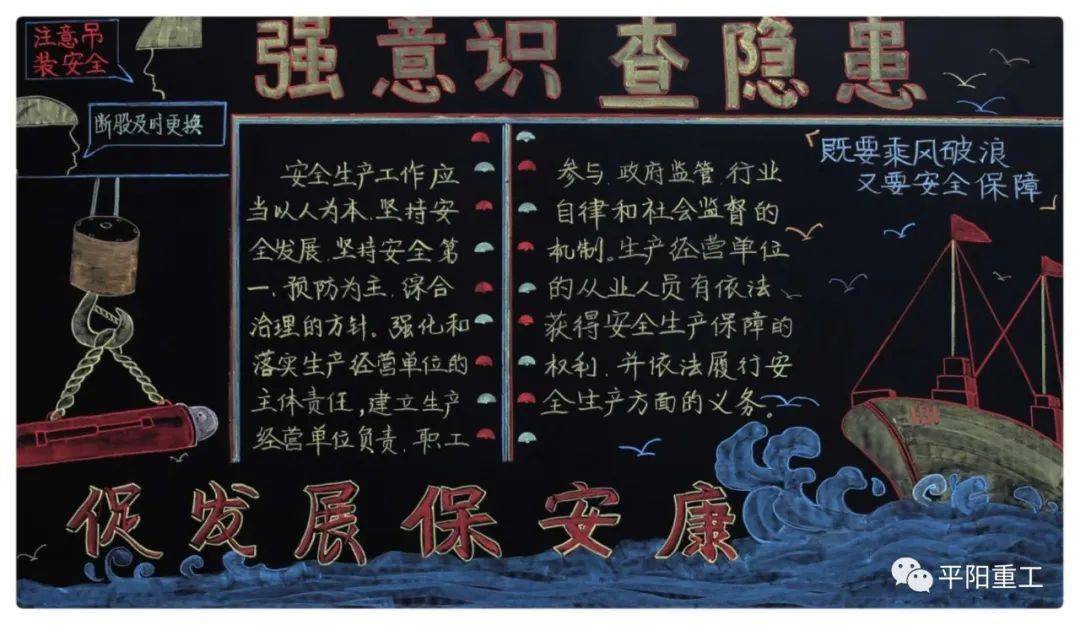 强意识查隐患
注意吊
装安全
断股及时更换
安全生产工作应
当以人为本、坚持安
全发展、坚持安全第
一、预防为主、综合
治理的方针。强化和
落实生产经营单位的
主体责任,建立生产
经营单位负责、职工
参与、政府监管、行业
自律和社会监督的
机制。生产经营单位
的从业人员有依法、
获得安全生产保障的
权利、并依法履行安
全生产方面的义务。
既要乘风破浪
又要安全保障
促发展保安康
平阳重工